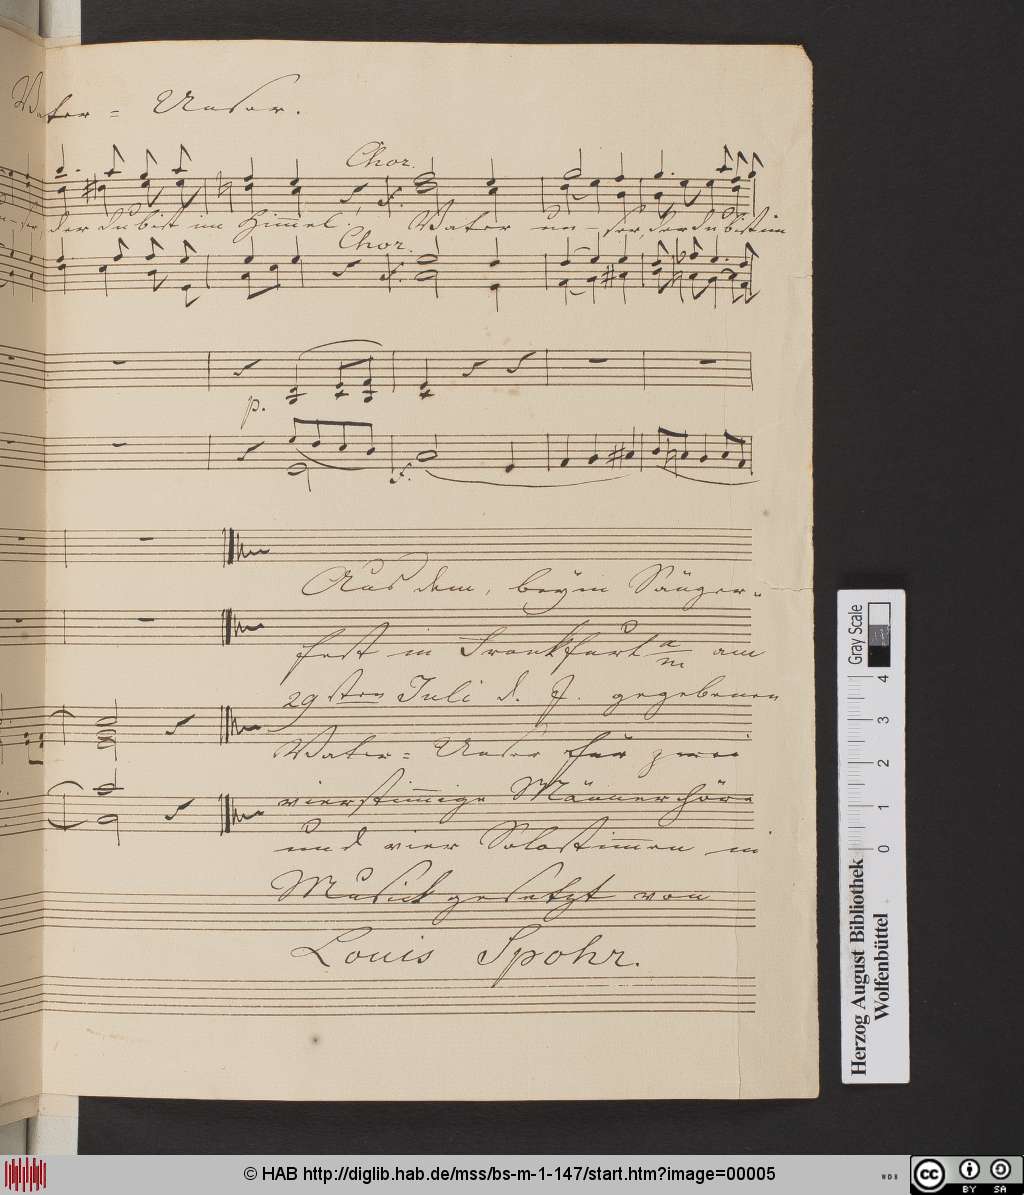 Vater = Unser.
Chor.
ser, der du bist im Himmel! Vater un - ser, der du bist im
Chor.
f.
p.
f.
Aus dem, beym Sänger-
fest in Frankfurt a/m am
29sten Juli d. J. gegebenen
Vater = Unser für zwei
vierstimmige Männerchöre
und vier Solostimmen in
Musick gesetzt von
Louis Spohr.
Gray Scale
0 1 2 3 4
Herzog August Bibliothek
Wolfenbüttel
© HAB http://diglib.hab.de/mss/bs-m-1-147/start.htm?image=00005
WDB
cc BY SA